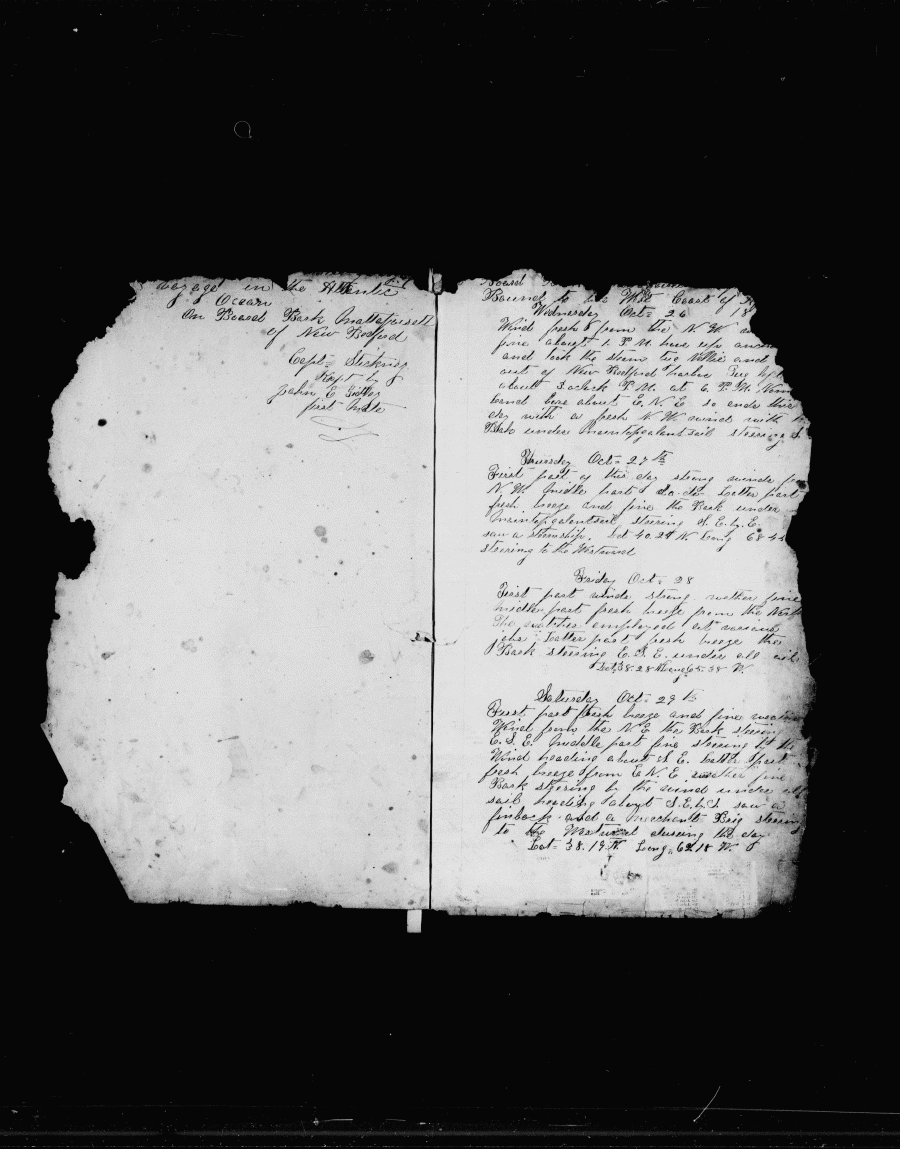 voyage in the Atlantic
Ocean
On Board Bark Mattapoisett
of New Bedford
Capt= Stickney
Kept by
John E
first Mate
Board
Bound to the West Coast of
Wednesday Oct= 26 18
Wind fresh from the N. W.
fine about 1 P. M. hove up
and took the steam tug Nellie and
out of New Bedford harbor Tug left
about 3 oclock P. M. at 6 P. M.
land bore about E. N. E. so ends this
day with a fresh N. W. wind with
Bark under maintopgalantsail steering
Thursday Oct= 27th
First part of this day strong winds
N. W. Midle part do. do Latter part
fresh breeze and fine the Bark under
Maintopgalantsail steering S. E. by E.
saw a steamship. Lat 40.24 N Long 68.4
steering to the Westward
Friday Oct= 28
First part winds strong wether fine
midle part fresh breeze from the North
The watches employed at various
jobs Latter part fresh breeze the
Bark steering E. S. E. under all sail
Lat 38.28 Long 65.38 W.
Saturday Oct= 29th
First part fresh breeze and fine
Wind from the N. E the Bark steering
E. S. E. Middle part fine steering by the
Wind heading about S. E. Latter part
fresh breeze from E. N. E. wether fine
Bark steering by the wind under all
sail heading about S. E. by S. saw a
finback and a merchant Brig steering
to the Westward during the day
Lat= 38.19 N. Long= 62 18 W.